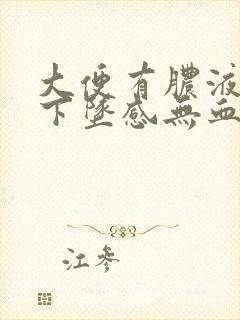 大便有膿液
下墜感無血
江參